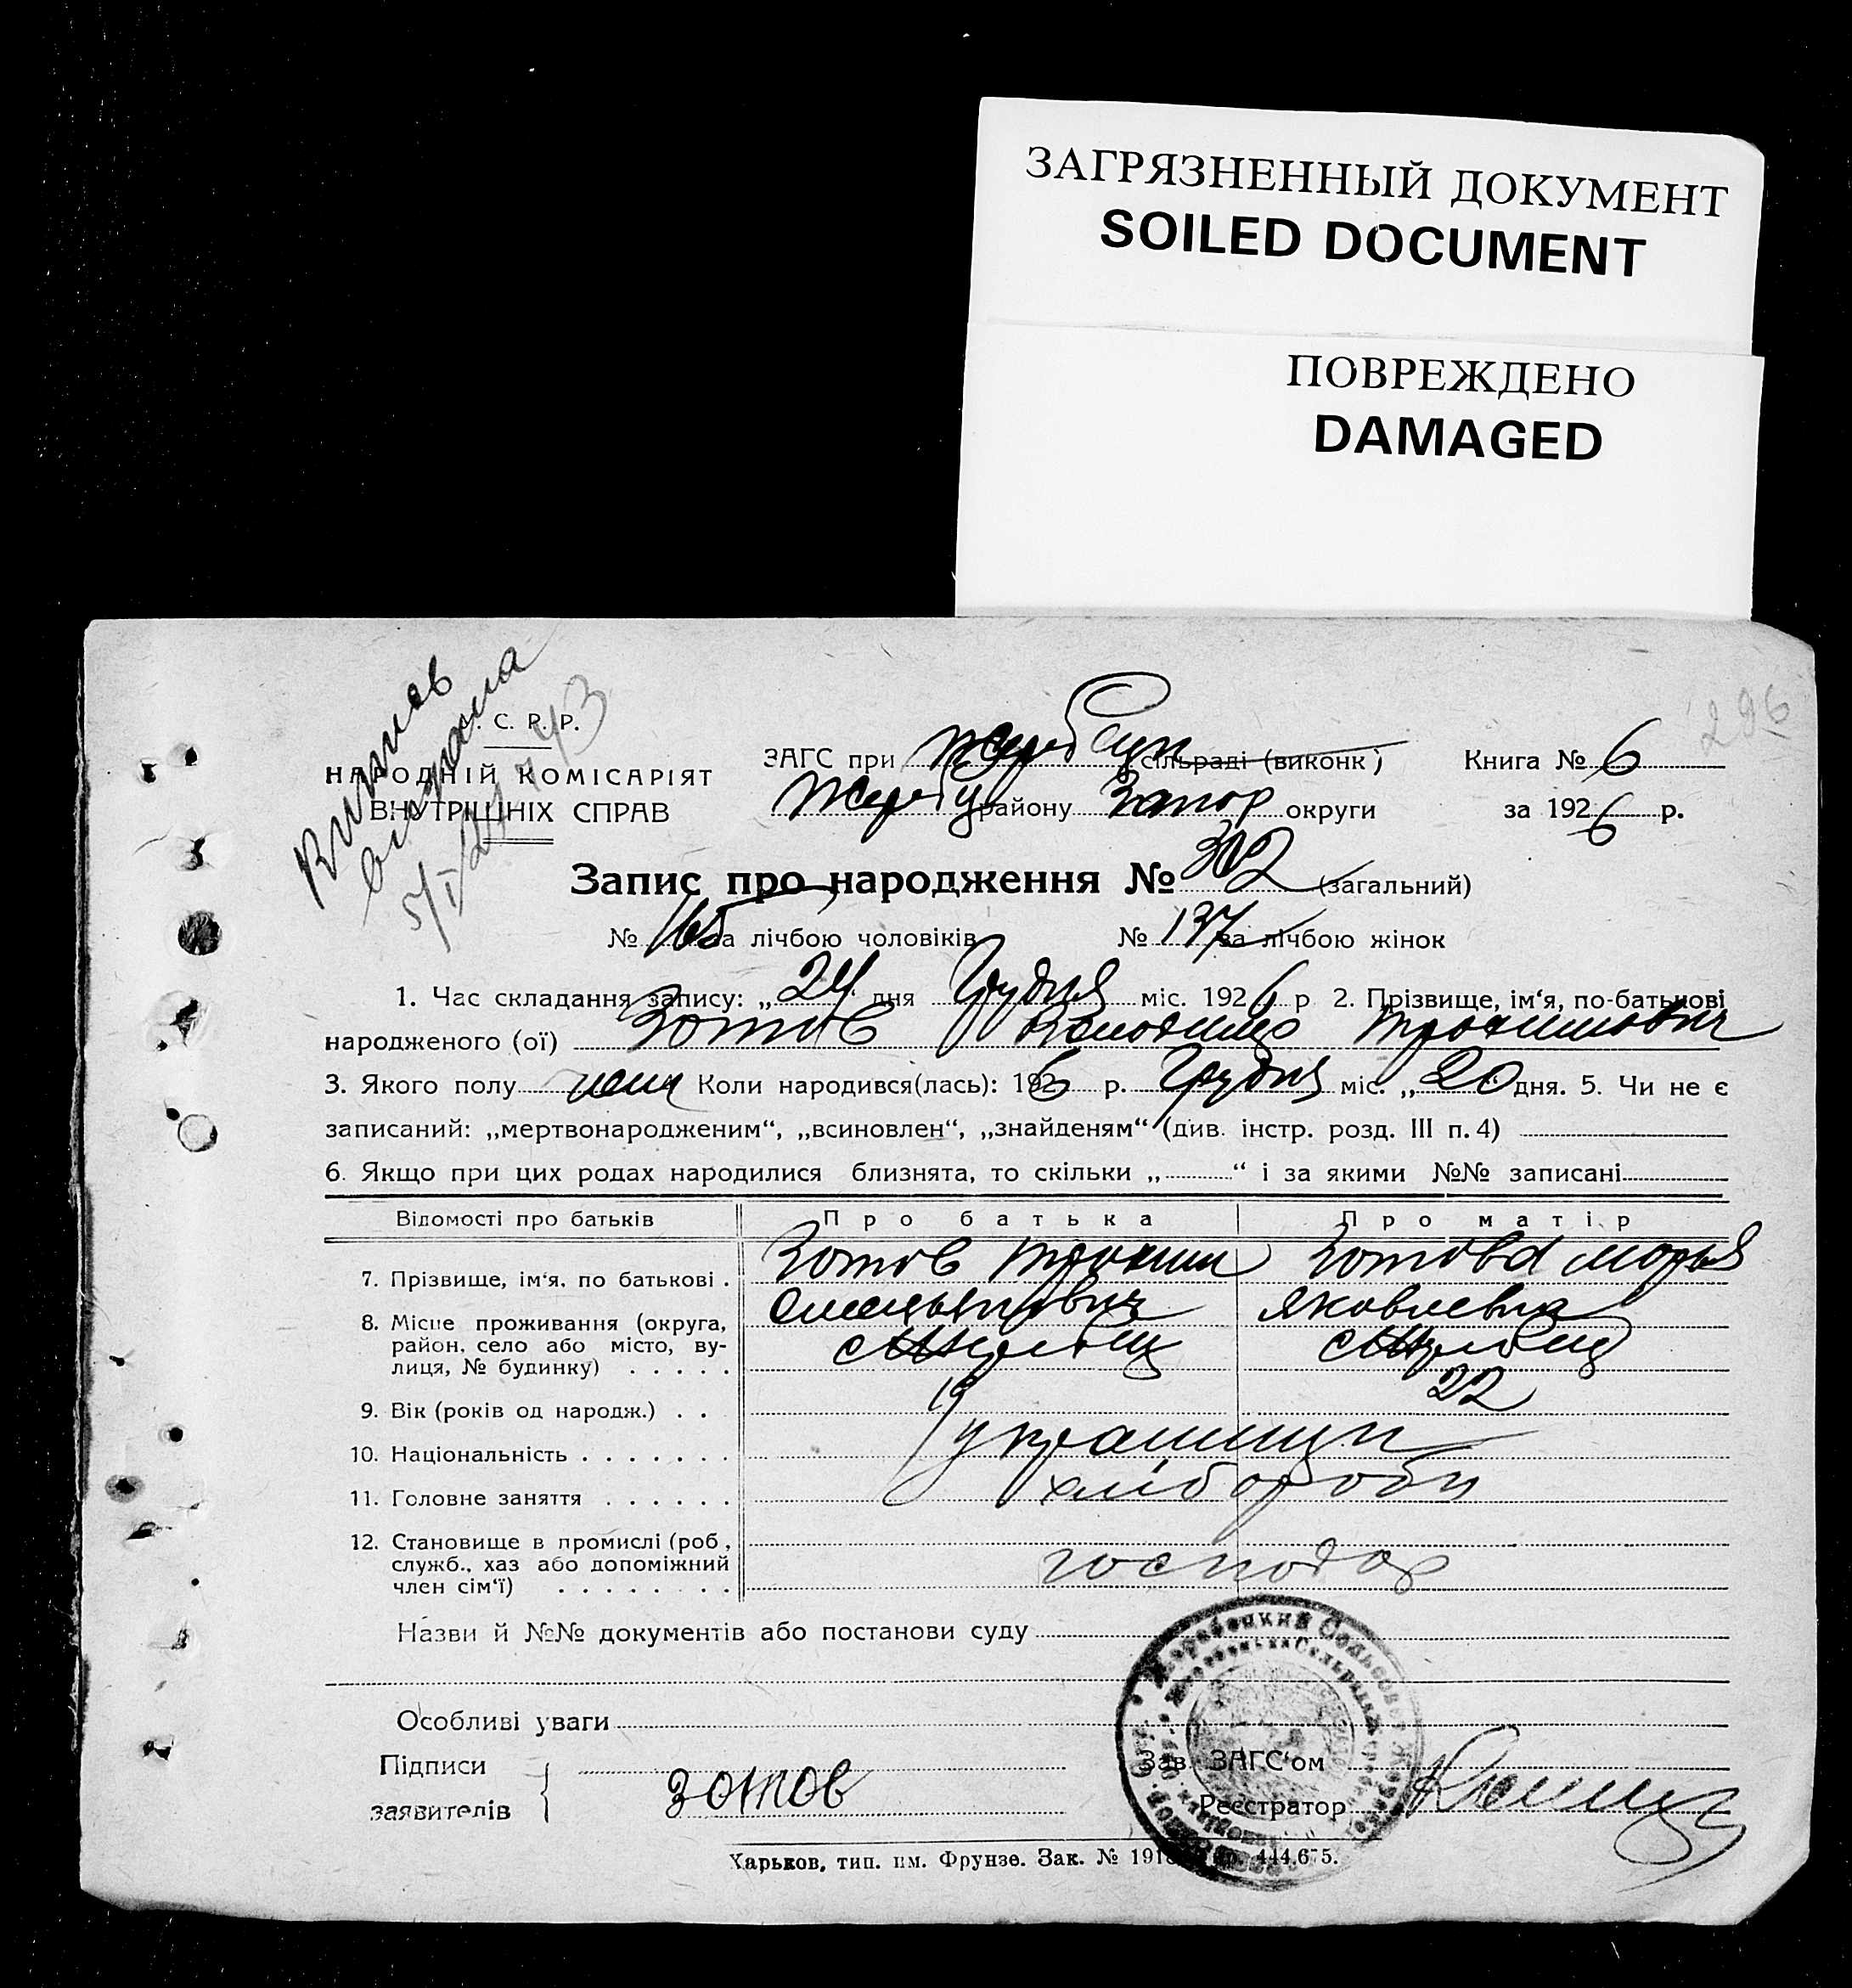 ЗАГРЯЗНЕННЫЙ ДОКУМЕНТ
SOILED DOCUMENT
ПОВРЕЖДЕНО
DAMAGED
С. Р. Р.
НАРОДНІЙ КОМІСАРІЯТ
ВНУТРІШНІХ СПРАВ
ЗАГС при сільраді (виконк)
району Запор округи
Книга № 6
за 1926 р.
Запис про народження № 302 (загальний)
№ 165 за лічбою чоловіків № 137 за лічбою жінок
1. Час складання запису: „24“ дня Грудня міс. 1926 р 2. Прізвище, ім‘я, по-батькові
народженого (ої) Зотов Володимир Трохимович
3. Якого полу Коли народився(лась): 1926 р. Грудня міс. „20“ дня. 5. Чи не є
записаний: „мертвонародженим“, „всиновлен“, „знайденям“ (див. інстр. розд. III п. 4)
6. Якщо при цих родах народилися близнята, то скільки „ “ і за якими №№ записані
Відомості про батьків Про батька Про матір
7. Прізвище, ім‘я, по батькові . Зотов Трохим Зотова Марья
Омельянович Яковлевна
8. Місце проживання (округа,
район, село або місто, ву-
лиця, № будинку) . . . . .
9. Вік (років од народж.) . . 19 22
10. Національність . . . . . . . українці
11. Головне заняття . . . . . . хлібороби
12. Становище в промислі (роб,
служб., хаз або допоміжний
член сім‘ї) . . . . . . . . господар
Назви й №№ документів або постанови суду
Особливі уваги
Підписи
заявителів
Зотов
Зав. ЗАГС‘ом
Реєстратор
Харьков, тип. им. Фрунзе. Зак. №